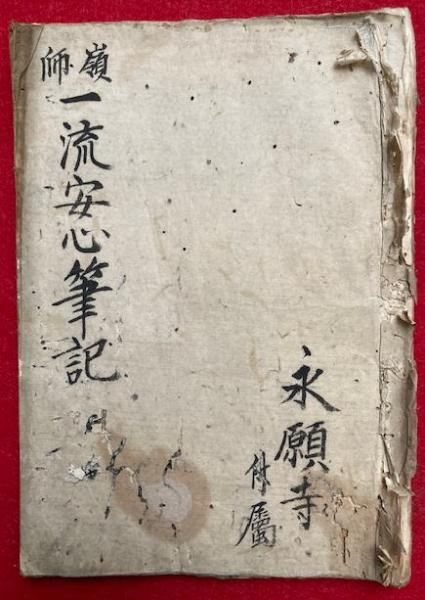 嶺師
一流安心筆記
永願寺
付属